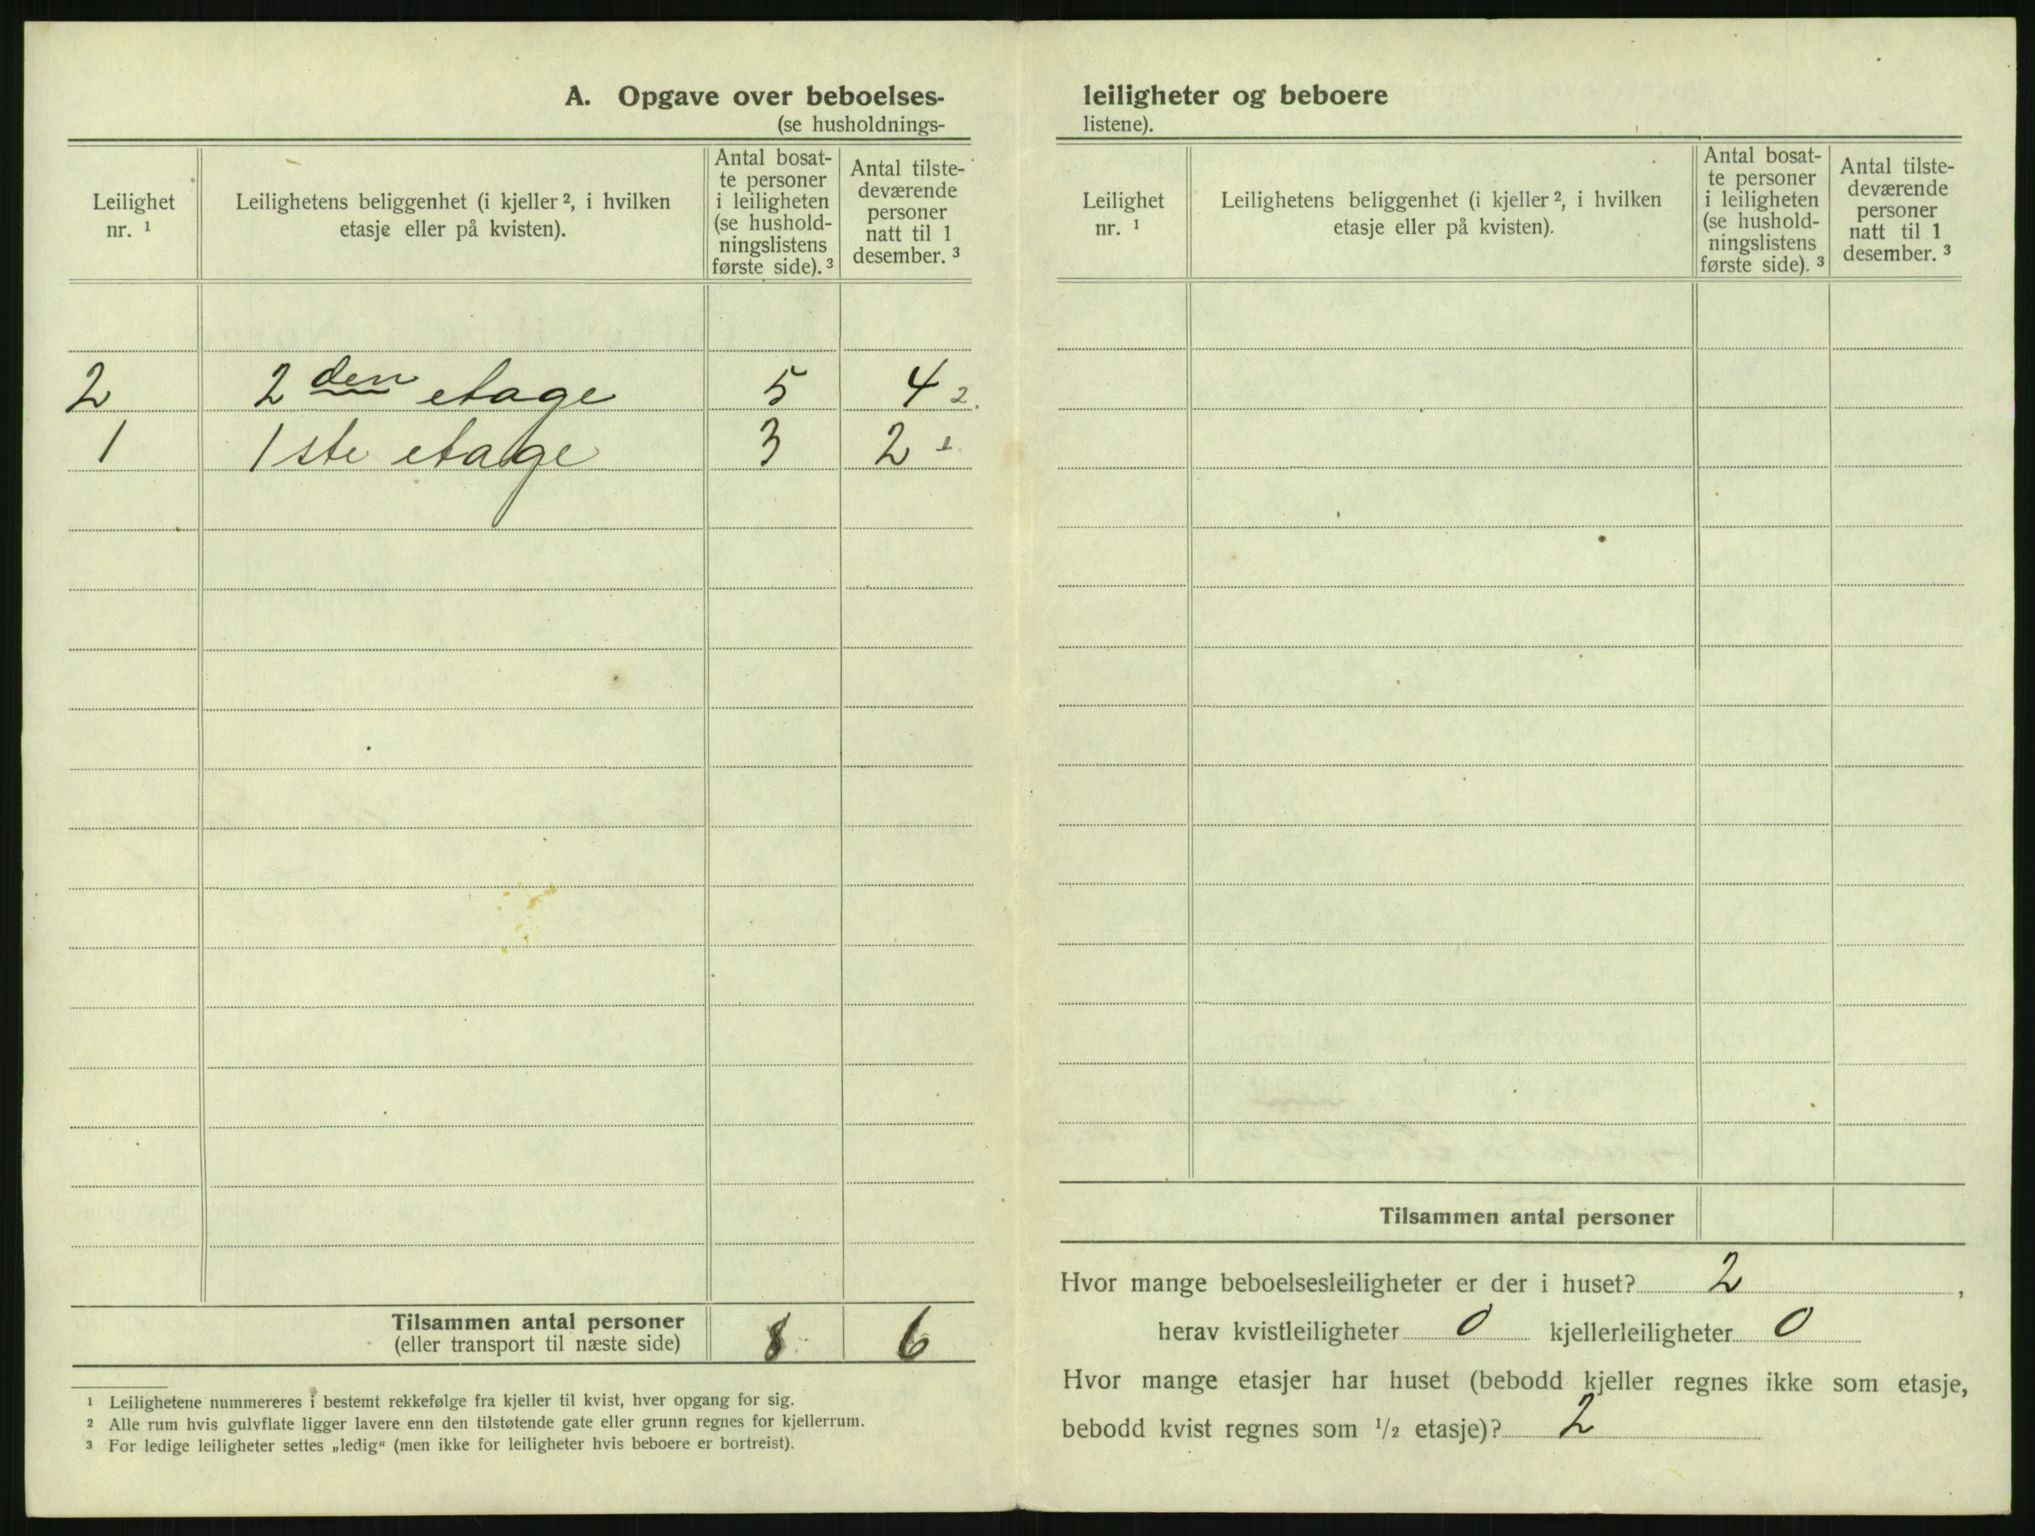 A. Opgave over beboelses-
(se husholdnings-
Leilighet nr. ¹
Leilighetens beliggenhet (i kjeller ², i hvilken
etasje eller på kvisten).
Antal bosat-
te personer
i leiligheten
(se hushold-
ningslistens
første side). ³
Antal tilste-
deværende
personer
natt til 1
desember. ³
2 2 den etage 5 4 2.
1 1 ste etage 3 2 1
Tilsammen antal personer
(eller transport til næste side) 8 6
¹ Leilighetene nummereres i bestemt rekkefølge fra kjeller til kvist, hver opgang for sig.
² Alle rum hvis gulvflate ligger lavere enn den tilstøtende gate eller grunn regnes for kjellerrum.
³ For ledige leiligheter settes „ledig“ (men ikke for leiligheter hvis beboere er bortreist).
leiligheter og beboere
listene).
Leilighet
nr. ¹
Leilighetens beliggenhet (i kjeller ², i hvilken
etasje eller på kvisten).
Antal bosat-
te personer
i leiligheten
(se hushold-
ningslistens
første side). ³
Antal tilste-
deværende
personer
natt til 1
desember. ³
Tilsammen antal personer
Hvor mange beboelsesleiligheter er der i huset? 2 ,
herav kvistleiligheter 0 kjellerleiligheter 0
Hvor mange etasjer har huset (bebodd kjeller regnes ikke som etasje,
bebodd kvist regnes som ½ etasje)? 2